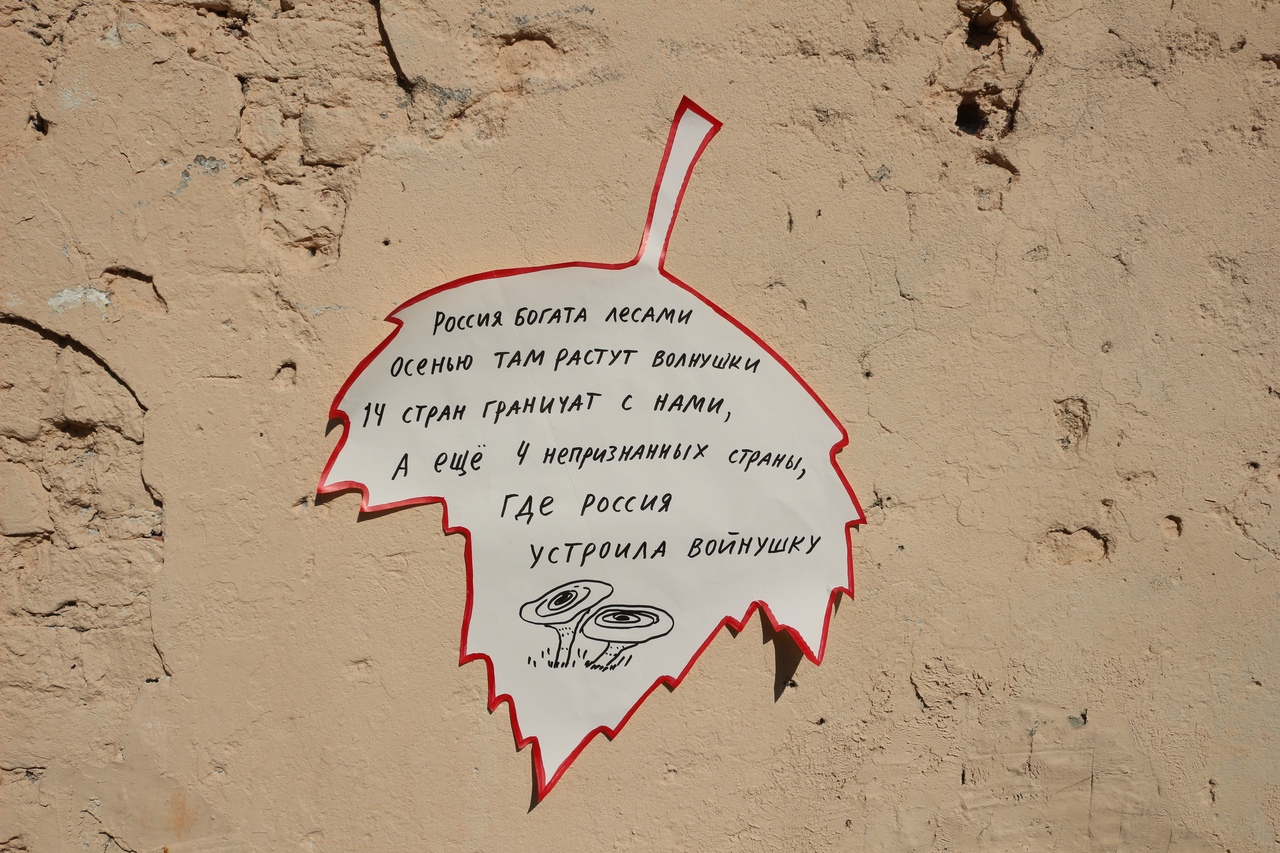 РОССИЯ БОГАТА ЛЕСАМИ
ОСЕНЬЮ ТАМ РАСТУТ ВОЛНУШКИ
14 СТРАН ГРАНИЧАТ С НАМИ,
А ЕЩЁ 4 НЕПРИЗНАННЫХ СТРАНЫ,
ГДЕ РОССИЯ
УСТРОИЛА ВОЙНУШКУ